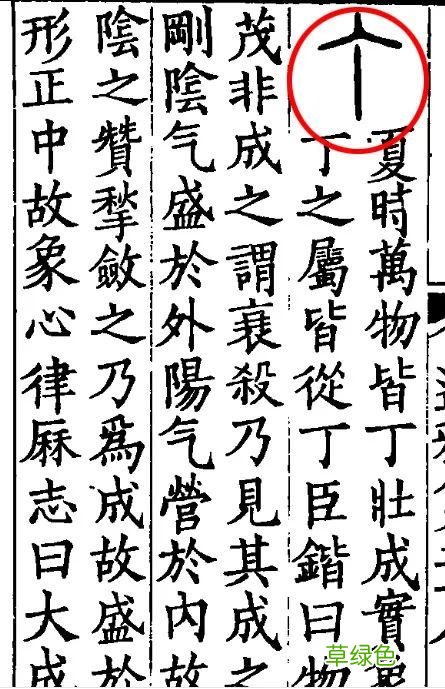 丁
夏時萬物皆丁壯成實
丁之屬皆從丁臣鍇曰物
茂非成之謂衰殺乃見其成之
剛陰气盛於外陽气營於内故
陰之贊揫斂之乃爲成故盛於
形正中故象心律厤志曰大成
草绿色